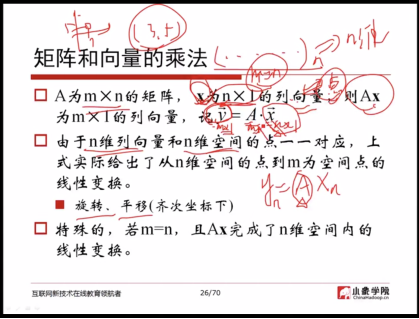 (3,5)
(· · · · · ·)n ⇒ n维
矩阵和向量的乘法
m=n
□ A为m×n的矩阵，x为n×1的列向量，则Ax
为m×1的列向量，记y=A·x
□ 由于n维列向量和n维空间的点一一对应，上
式实际给出了从n维空间的点到m为空间点的
线性变换。
yn=A Xn
■ 旋转、平移(齐次坐标下)
□ 特殊的，若m=n，且Ax完成了n维空间内的
线性变换。
互联网新技术在线教育领航者
26/70
小象学院
ChinaHadoop.cn